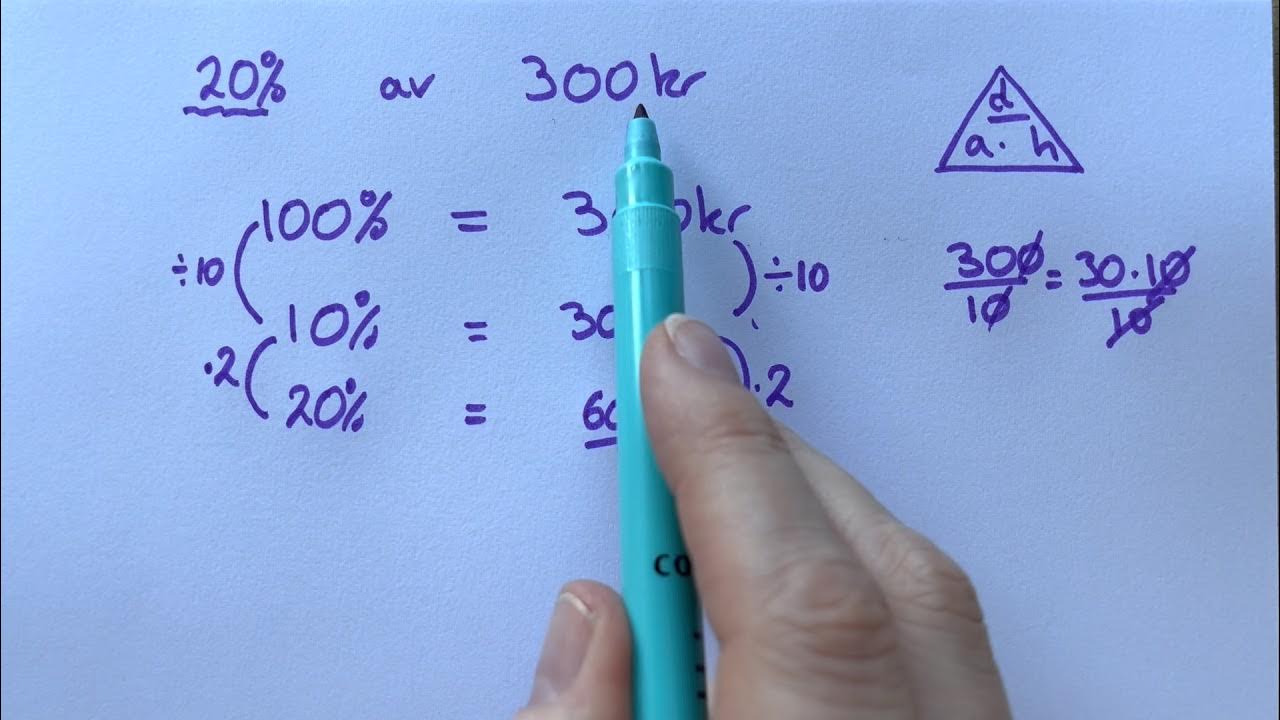 20% av 300kr
100% = 3 0kr
÷10 ÷10
10% = 30
·2 ·2
20% = 60
d
a · h
300/10 = 30·10/10
co